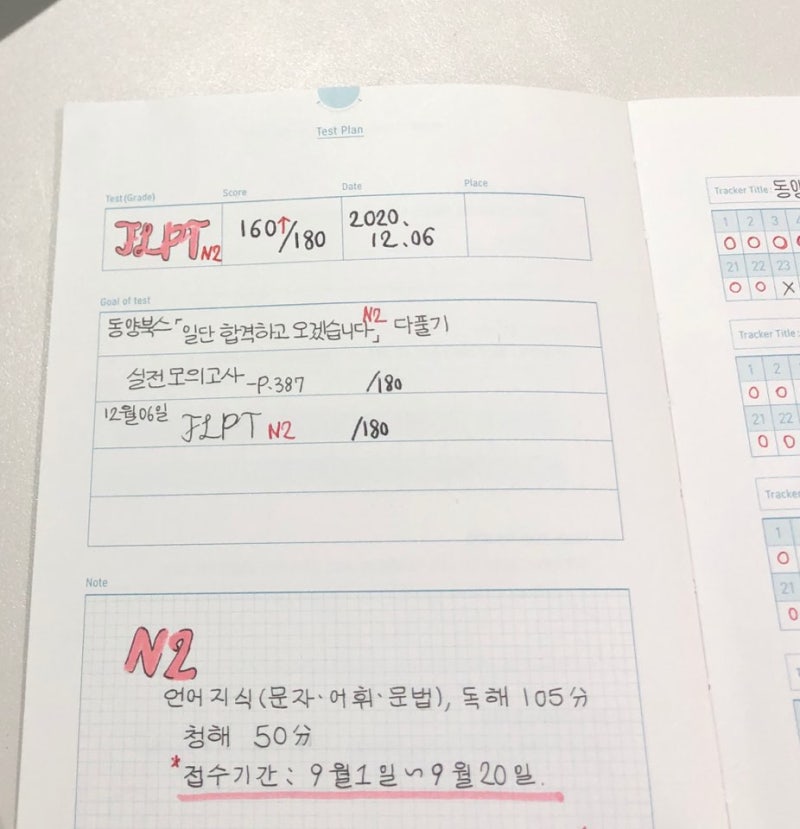 Test Plan
Test(Grade) Score Date Place
JLPT N2 160↑/180 2020. 12.06
Goal of test
동양북스 「일단 합격하고 오겠습니다」 N2 다풀기
실전모의고사 -P.387 /180
12월06일 JLPT N2 /180
Note
N2
언어지식(문자·어휘·문법), 독해 105分
청해 50分
*접수기간: 9월1일~9월20일.
Tracker Title: 동양
1 2 3
O O O
21 22 23
O O X
Tracker Title:
1 2
O O
21 22
O O
Tracker
1
O
21
O